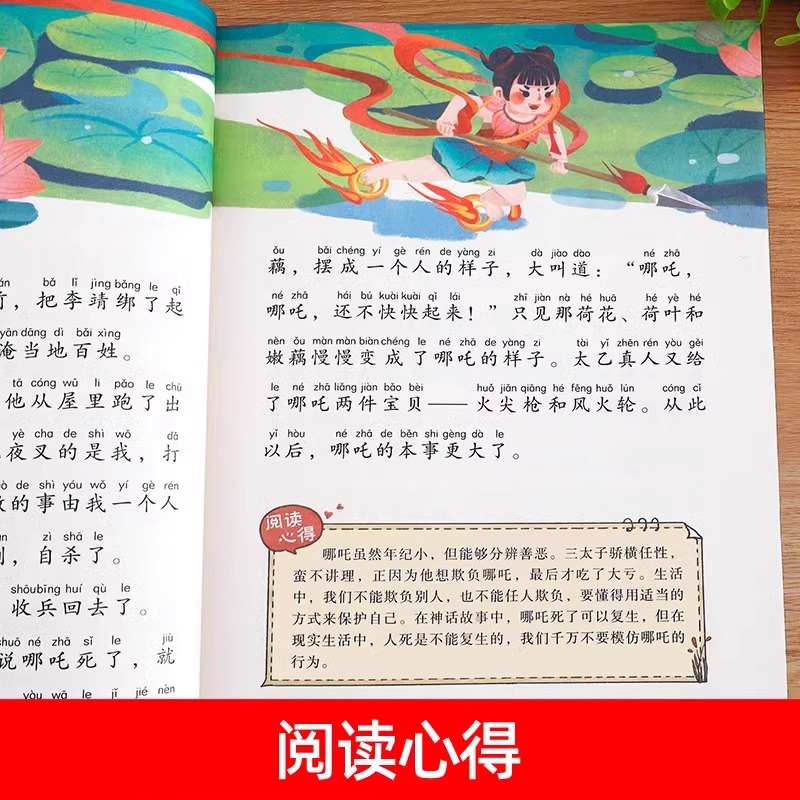 bǎ lǐ jìng bǎng le qǐ
，把李靖绑了起
yān dāng dì bǎi xìng
淹当地百姓。
tā cóng wū lǐ pǎo le chū
他从屋里跑了出
yè cha de shì wǒ dǎ
夜叉的是我，打
de shì yóu wǒ yí gè rén
的事由我一个人
zì shā le
，自杀了。
shōu bīng huí qù le
收兵回去了。
shuō né zhā sǐ le jiù
说哪吒死了，就
yòu wā le jǐ jié nèn
ǒu bǎi chéng yí gè rén de yàng zi dà jiào dào né zhā
藕，摆成一个人的样子，大叫道：“哪吒，
né zhā hái bú kuài kuài qǐ lái zhǐ jiàn nà hé huā hé yè hé
哪吒，还不快快起来！”只见那荷花、荷叶和
nèn ǒu màn màn biàn chéng le né zhā de yàng zi tài yǐ zhēn rén yòu gěi
嫩藕慢慢变成了哪吒的样子。太乙真人又给
le né zhā liǎng jiàn bǎo bèi huǒ jiān qiāng hé fēng huǒ lún cóng cǐ
了哪吒两件宝贝——火尖枪和风火轮。从此
yǐ hòu né zhā de běn shi gèng dà le
以后，哪吒的本事更大了。
阅读
心得
哪吒虽然年纪小，但能够分辨善恶。三太子骄横任性，
蛮不讲理，正因为他想欺负哪吒，最后才吃了大亏。生活
中，我们不能欺负别人，也不能任人欺负，要懂得用适当的
方式来保护自己。在神话故事中，哪吒死了可以复生，但在
现实生活中，人死是不能复生的，我们千万不要模仿哪吒的
行为。
阅读心得